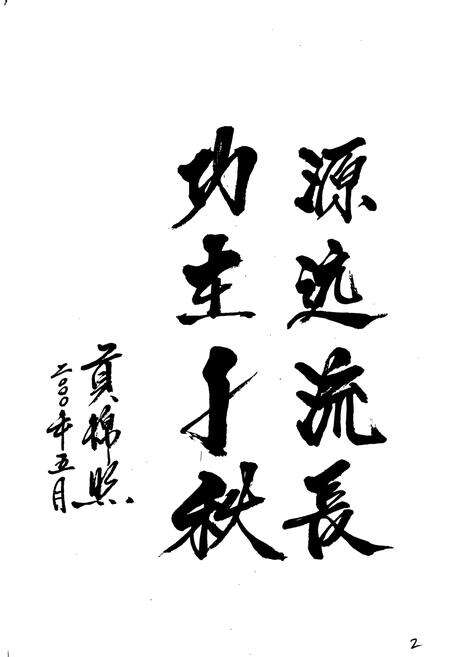 源远流長
功在千秋
黄棉照
二〇〇〇年五月
2